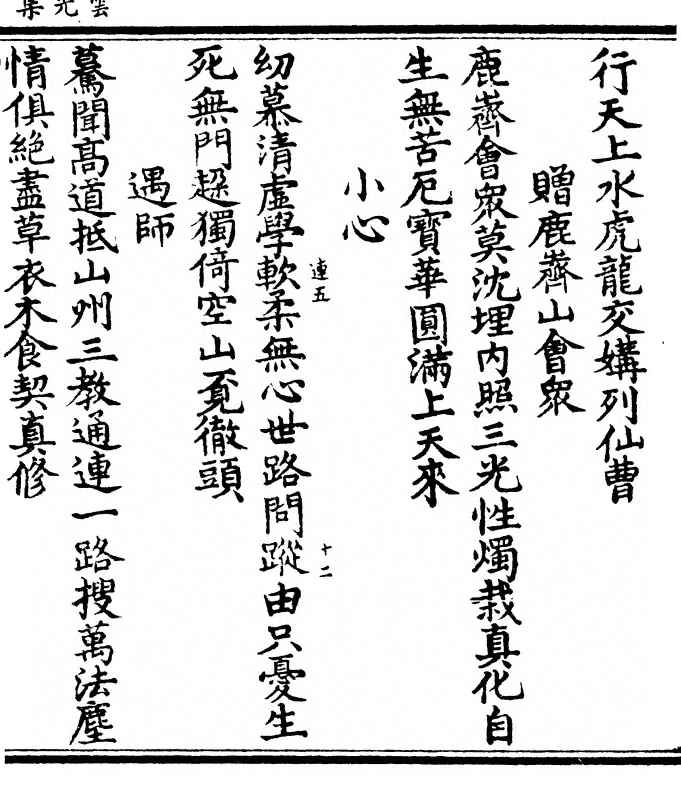 雲光集
行天上水虎龍交媾列仙曹
贈鹿薺山會衆
鹿薺會衆莫沈埋内照三光性燭栽真化自
生無苦厄寳華圓滿上天來
小心
幼慕清虚學軟柔無心世路問蹤由只憂生
連五
十二
死無門趓獨倚空山覔徹頭
遇師
驀聞髙道抵山州三教通連一路搜萬法塵
情俱絶盡草衣木食契真修